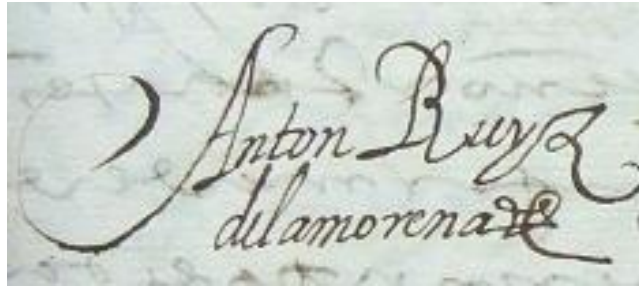 Anton Ruyz
delamorena